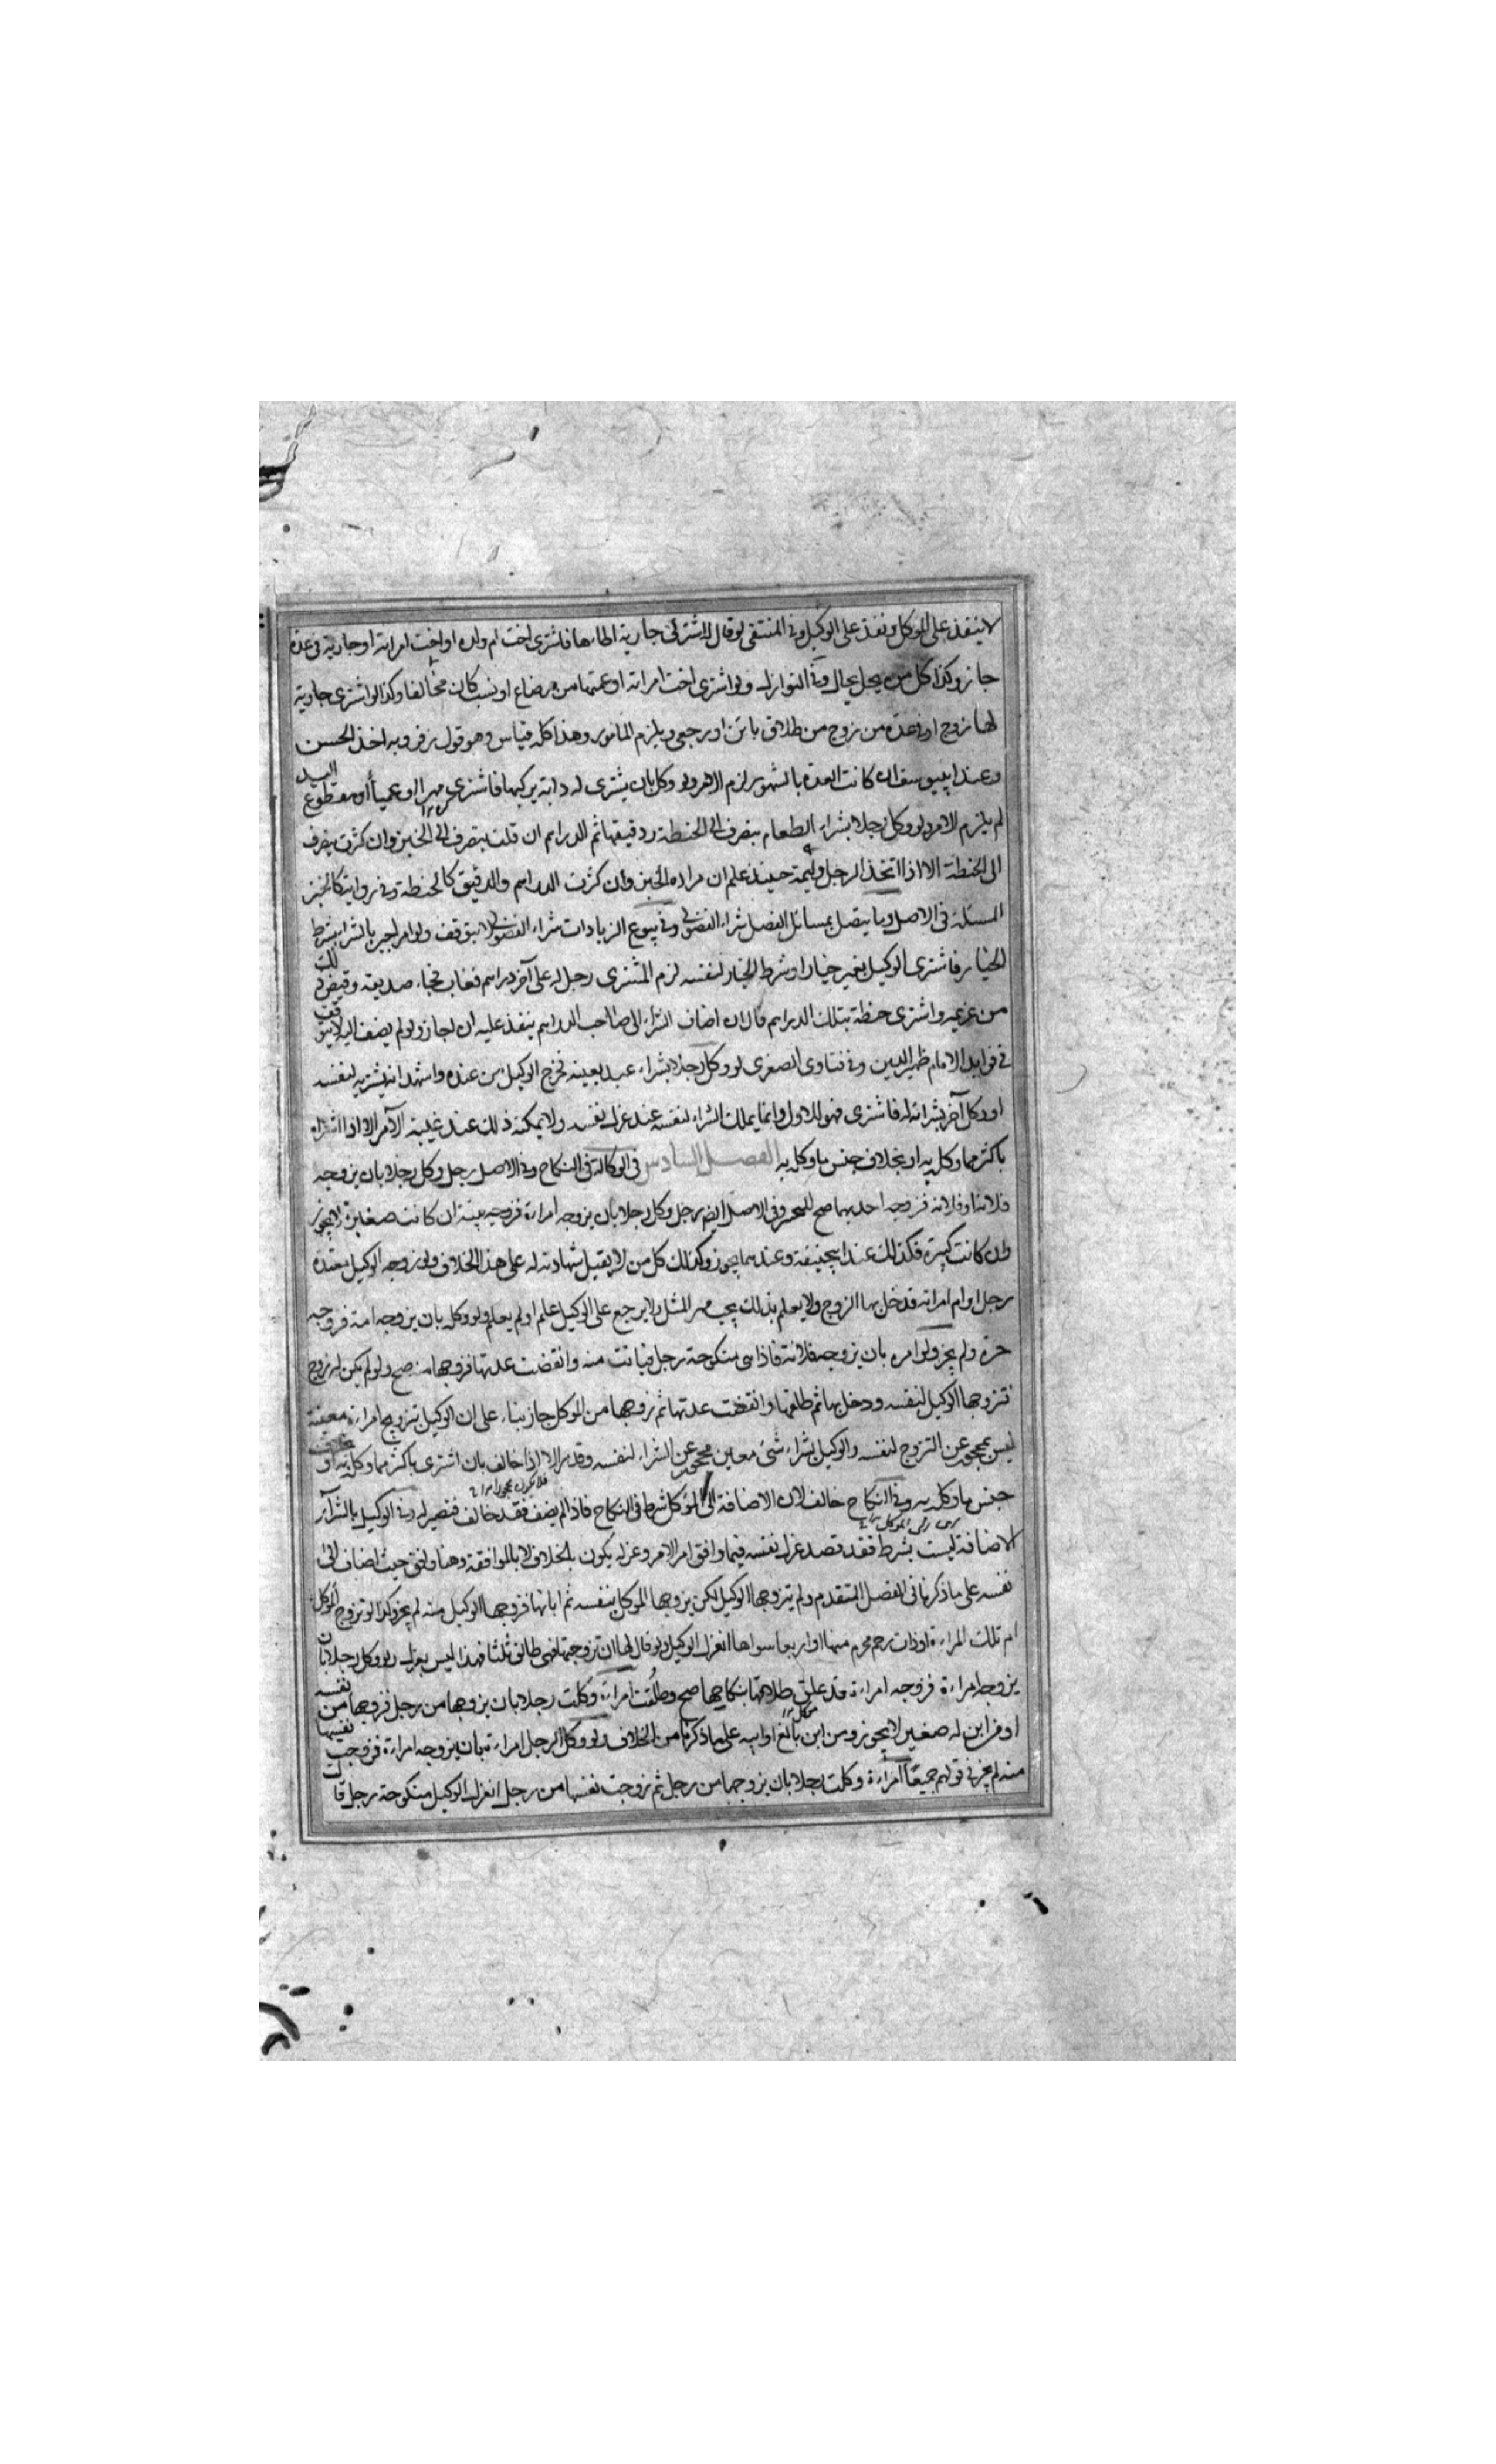 لا ينفذ على الموكل ونفذ على الوكيل وفي المنتقى لو قال اشتر لي جارية اطاءها فاشترى اخت ام ولده او اخت امراته او جارية في عدة
جاز وكذا كل من يحل بحال وفي النوازل ولو اشترى اخت امراته او عمتها من رضاع او نسب كان مخالفا وكذا لو اشترى جارية
لها زوج او في عدة من زوج من طلاق باين او رجعي ويلزم المامور وهذا كله قياس وهو قول زفر وبه اخذ الحسن
وعند ابييوسف ان كانت العدة بالشهور لزم الامر ولو وكل بان يشترى له دابة يركبها فاشترى مهرا او عمياء او مقطوع اليد
لم يلزم الامر ولو وكل رجلا بشراء الطعام ينصرف الى الحنطة ودقيقها ثم الدراهم ان قلت ينصرف الى الخبز وان كثرت ينصرف
الى الحنطة الا اذا اتخذ الرجل وليمة حينئذ علم ان مراده الخبز وان كثرت الدراهم والدقيق كالحنطة وفي رواية كالخبز
المسئلة في الاصل وما يتصل بمسائل الفصل شراء الفضولي وفي بيوع الزيادات شراء الفضولي لا يتوقف ولو امر اجير بالشراء بشرط
الخيار فاشترى الوكيل بغير خيار او شرط الخيار لنفسه لزم المشترى رجل له على آخر دراهم فغاب فجاء صديقه وقبض ذلك
من غريمه واشترى حنطة بتلك الدراهم قال ان اضاف الشراء الى صاحب الدراهم ينفذ عليه ان اجاز ولو لم يضف اليه لا يتوقف
في فوايد الامام ظهير الدين وفي فتاوى الصغرى لو وكل رجلا بشراء عبد بعينه فخرج الوكيل من عنده واشهد انه يشتريه لنفسه
او وكل آخر بشرائه له فاشترى فهو للاول وانما يملك الشراء لنفسه عند عزل نفسه ولا يمكنه ذلك عند غيبة الآمر الا اذا اشتراه
باكثر مما وكل به او بخلاف جنس ما وكل به الفصل السادس في الوكالة في النكاح وفي الاصل رجل وكل رجلا بان يزوجه
فلانة او فلانة فزوجه احديهما صح وفي الاصل ايضا رجل وكل رجلا بان يزوجه امراءة فزوجه بنته ان كانت صغيرة لا يجوز
وان كانت كبيرة فكذلك عند ابيحنيفة وعندهما يجوز وكذلك كل من لا يقبل شهادته له على هذا الخلاف ولو زوجه الوكيل معتدة
رجل او ام امراته قد دخل بها الزوج ولا يعلم بذلك يجب مهر المثل ولا يرجع على الوكيل علم او لم يعلم ولو وكله بان يزوجه امة فزوجه
حرة ولم يجز ولو امره بان يزوجه فلانة فاذا هي منكوحة رجل فبانت منه وانقضت عدتها فزوجها منه صح ولو لم يكن لها زوج
فتزوجها الوكيل لنفسه ودخل بها ثم طلقها وانقضت عدتها ثم زوجها من الموكل جاز بناء على ان الوكيل بتزويج امراءة معينة
ليس بمحجور عن التزوج لنفسه والوكيل بشراء شئ معين محجور عن الشراء لنفسه وقد مر الا اذا خالف بان اشترى باكثر مما وكل به او بخلاف
جنس ما وكل به وفي النكاح خالف لان الاضافة الى الموكل شرط في النكاح فاذا لم يضف فقد خالف فتصير له وفي الوكيل بالشراء
الاضافة ليست بشرط فقد قصد عزل نفسه فيما وافق امر الامر وعزله يكون بالخلاف لا بالموافقة وهنا وافق حيث اضاف الى
نفسه على ما ذكرنا في الفصل المتقدم ولم يتزوجها الوكيل لكن يزوجها الموكل بنفسه ثم ابانها فزوجها الوكيل منه لم يجز وكذا لو تزوج الموكل
ام تلك المراءة او ذات رحم محرم منها او اربعا سواها انعزل الوكيل ولو قال لها ان تزوجتها فهي طالق ثلثا فهذا ليس بعزل ولو وكل رجلا بان
يزوجه امراءة فزوجه امراءة قد علق طلاقها بنكاحها صح وطلقت امراءة وكلت رجلا بان يزوجها من رجل فزوجها من نفسه
او من ابن له صغير لا يجوز ومن ابن بالغ او ابيه على ما ذكرنا من الخلاف ولو وكل الرجل امراءة بان يزوجه امراءة فزوجت نفسها
منه لم يجز في قولهم جميعا امراءة وكلت رجلا بان يزوجها من رجل ثم زوجت نفسها من رجل انعزل الوكيل منكوحة رجل قالت